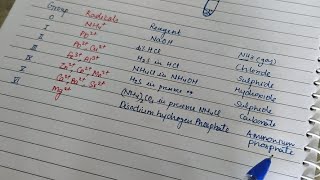 Group Radicals Reagent
0 NH4+ NaOH NH3 (gas)
I Pb2+ dil HCl Chloride
II Pb2+ Cu2+ H2S in HCl Sulphide
III Fe3+ Al3+ NH4Cl in NH4OH Hydroxide
IV H2S in presence Sulphide
V Ca2+ Ba2+ Sr2+ (NH4)2CO3 in presence NH4Cl Carbonate
VI Mg2+ Disodium hydrogen Phosphate Ammonium
phosphate